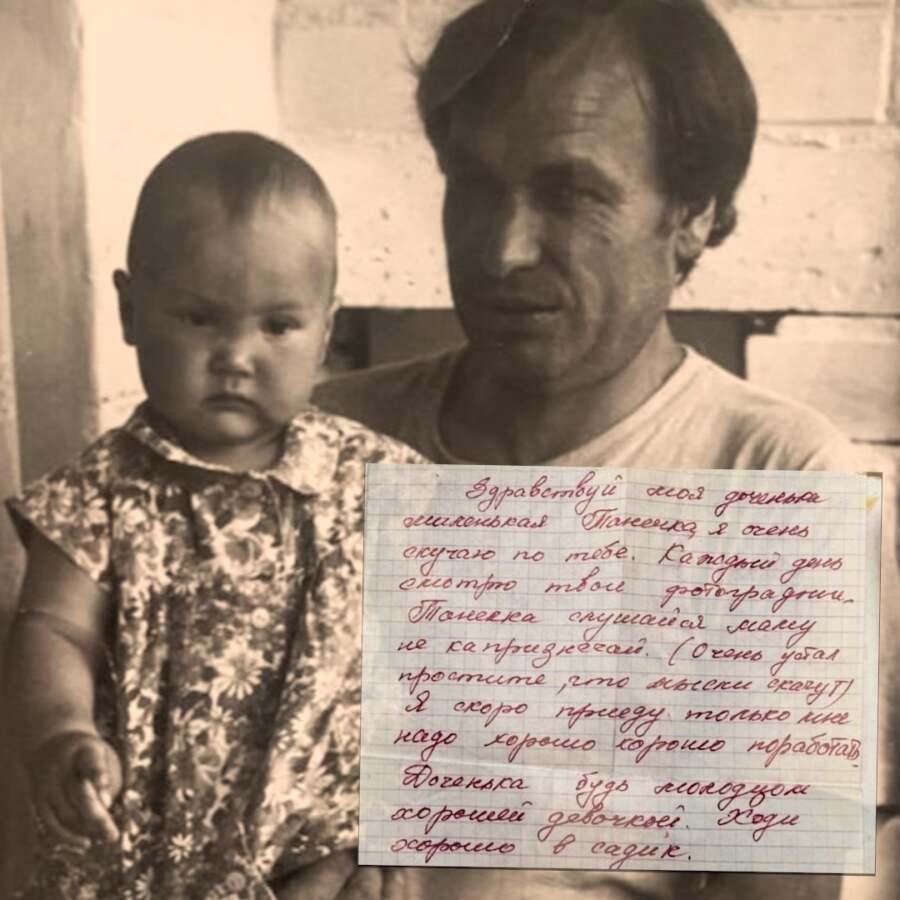 Здравствуй моя доченька
миленькая Танечка, я очень
скучаю по тебе. Каждый день
смотрю твои фотографии.
Танечка слушайся маму
не капризничай. (Очень устал
простите, что мысли скачут)
Я скоро приеду только мне
надо хорошо хорошо поработать
Доченька будь молодцом
хорошей девочкой. Ходи
хорошо в садик.